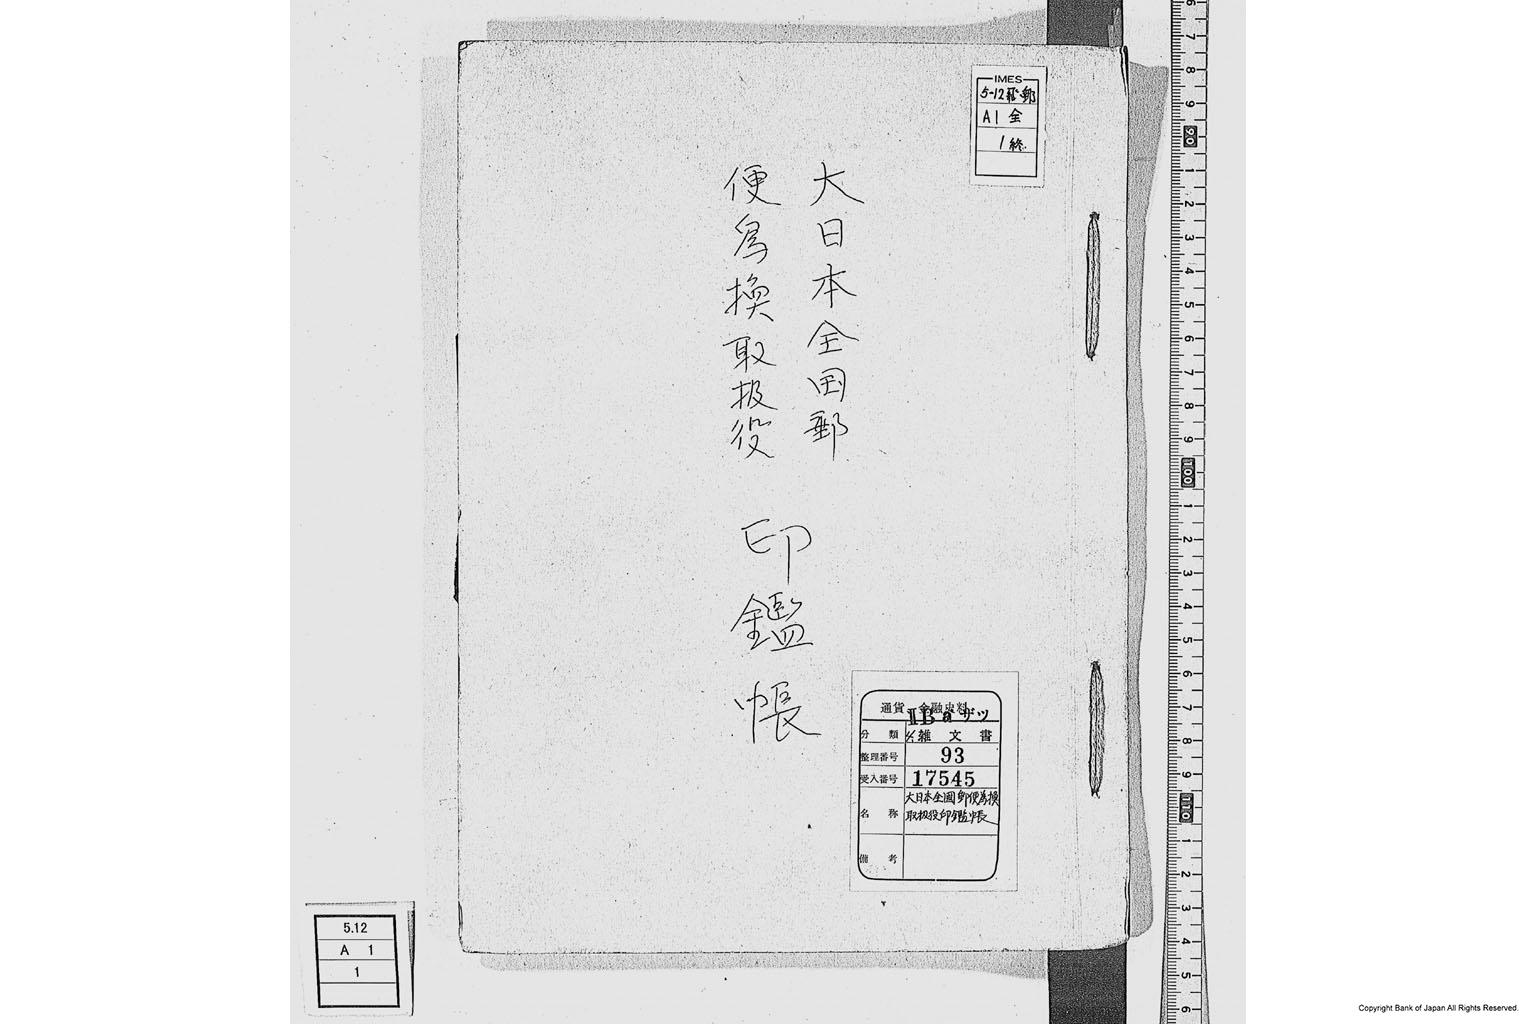 IMES
5-12 郵
A1 全
1 終
大日本全国郵
便為換取扱役
印鑑帳
通貨 金融史料
ⅡBaザツ
分類 雑文書
整理番号 93
受入番号 17545
名称 大日本全國郵便為換
取扱役印鑑帳
備考
5.12
A 1
1
6 7 8 9 90 1 2 3 4 5 6 7 8 9 100 1 2 3 4 5 6 7 8 9 110 1 2 3 4 5 6
Copyright Bank of Japan All Rights Reserved.